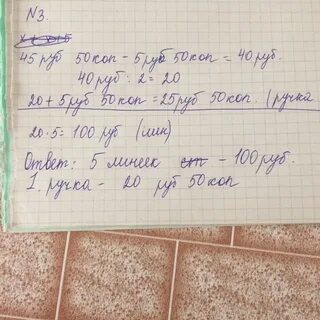 N3.
45 руб 50 коп - 5 руб 50 коп = 40 руб.
40 руб : 2 = 20
20 + 5 руб 50 коп = 25 руб 50 коп. (ручка
20·5 = 100 руб (лин)
Ответ: 5 линеек - 100 руб.
1 ручка - 20 руб 50 коп